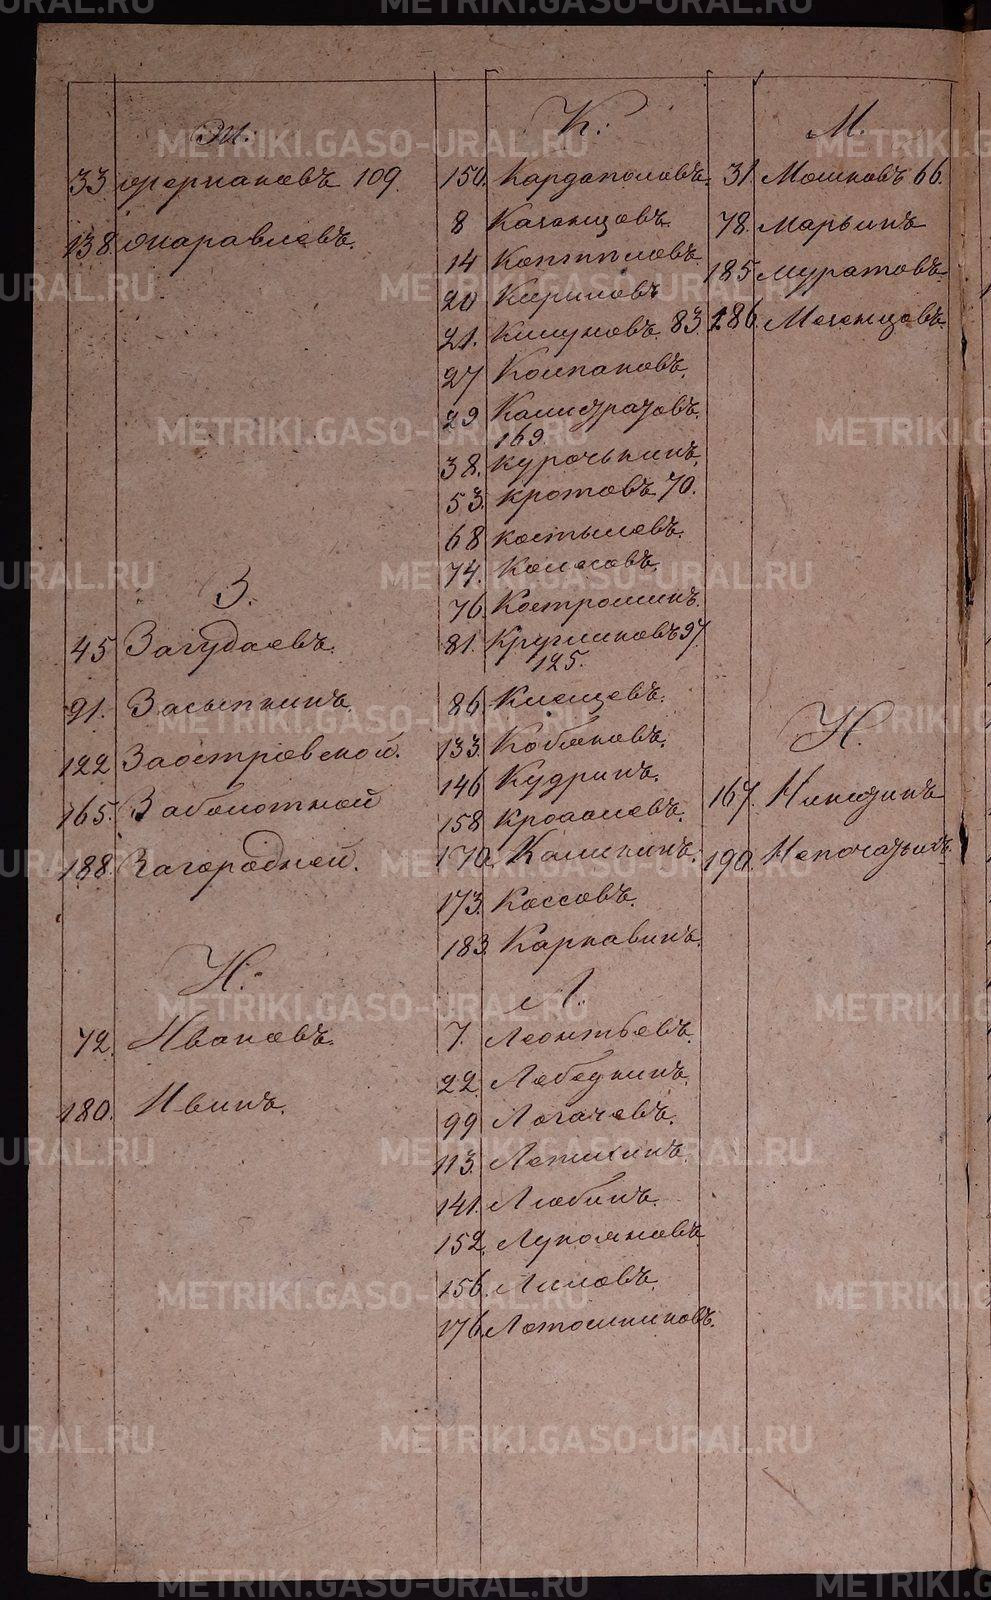 Ж.
33 Жернаковъ 109.
138. Журавлевъ.
З.
45 Загудаевъ.
91. Засыпкинъ.
122 Заостровской.
165. Заболотной
188. Загородней.
И.
72. Ивановъ.
180. Ивинъ.
К.
150. Кардаполовъ.
8 Казанцовъ.
14 Коптиловъ
20 Кириловъ
21. Климовъ. 83.
27 Колпаковъ.
29 Калистратовъ.
169.
38. Курочькинъ.
53. Кротовъ 70.
68 Костылевъ.
74. Колесовъ.
76. Костроминъ.
81. Кругликовъ 97.
125.
86. Клещевъ.
133. Кобяковъ.
146 Кудринъ.
158 Кровалевъ.
170. Калининъ.
173. Коссовъ.
183. Каркавинъ.
Л.
7. Леонтьевъ.
22. Лебедкинъ.
99 Логачевъ.
113. Летихинъ.
141. Любинъ.
152. Лукояновъ
156. Лиловъ.
176. Лотошниковъ.
М.
31. Мошковъ 66.
78. Марьинъ
185. Муратовъ
186. Мезенцовъ
Н.
167. Никитинъ
190. Непочатыхъ
METRIKI.GASO-URAL.RU